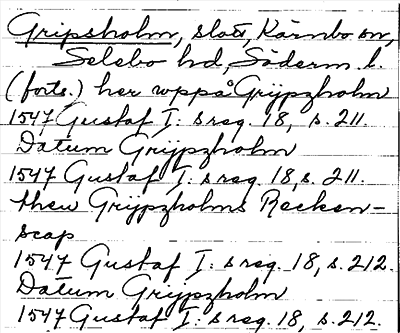 Gripsholm, slott, Kärnbo sn,
Selebo hd, Söderm. l.
(forts.) her wppå Grijpzholm
1547 Gustaf I: s reg. 18, s. 211.
Datum Grijpzholm
1547 Gustaf I: s reg. 18, s. 211.
thew Grijpzholms Recken-
scap
1547 Gustaf I: s reg. 18, s. 212.
Datum Grijpzholm
1547 Gustaf I: s reg. 18, s. 212.